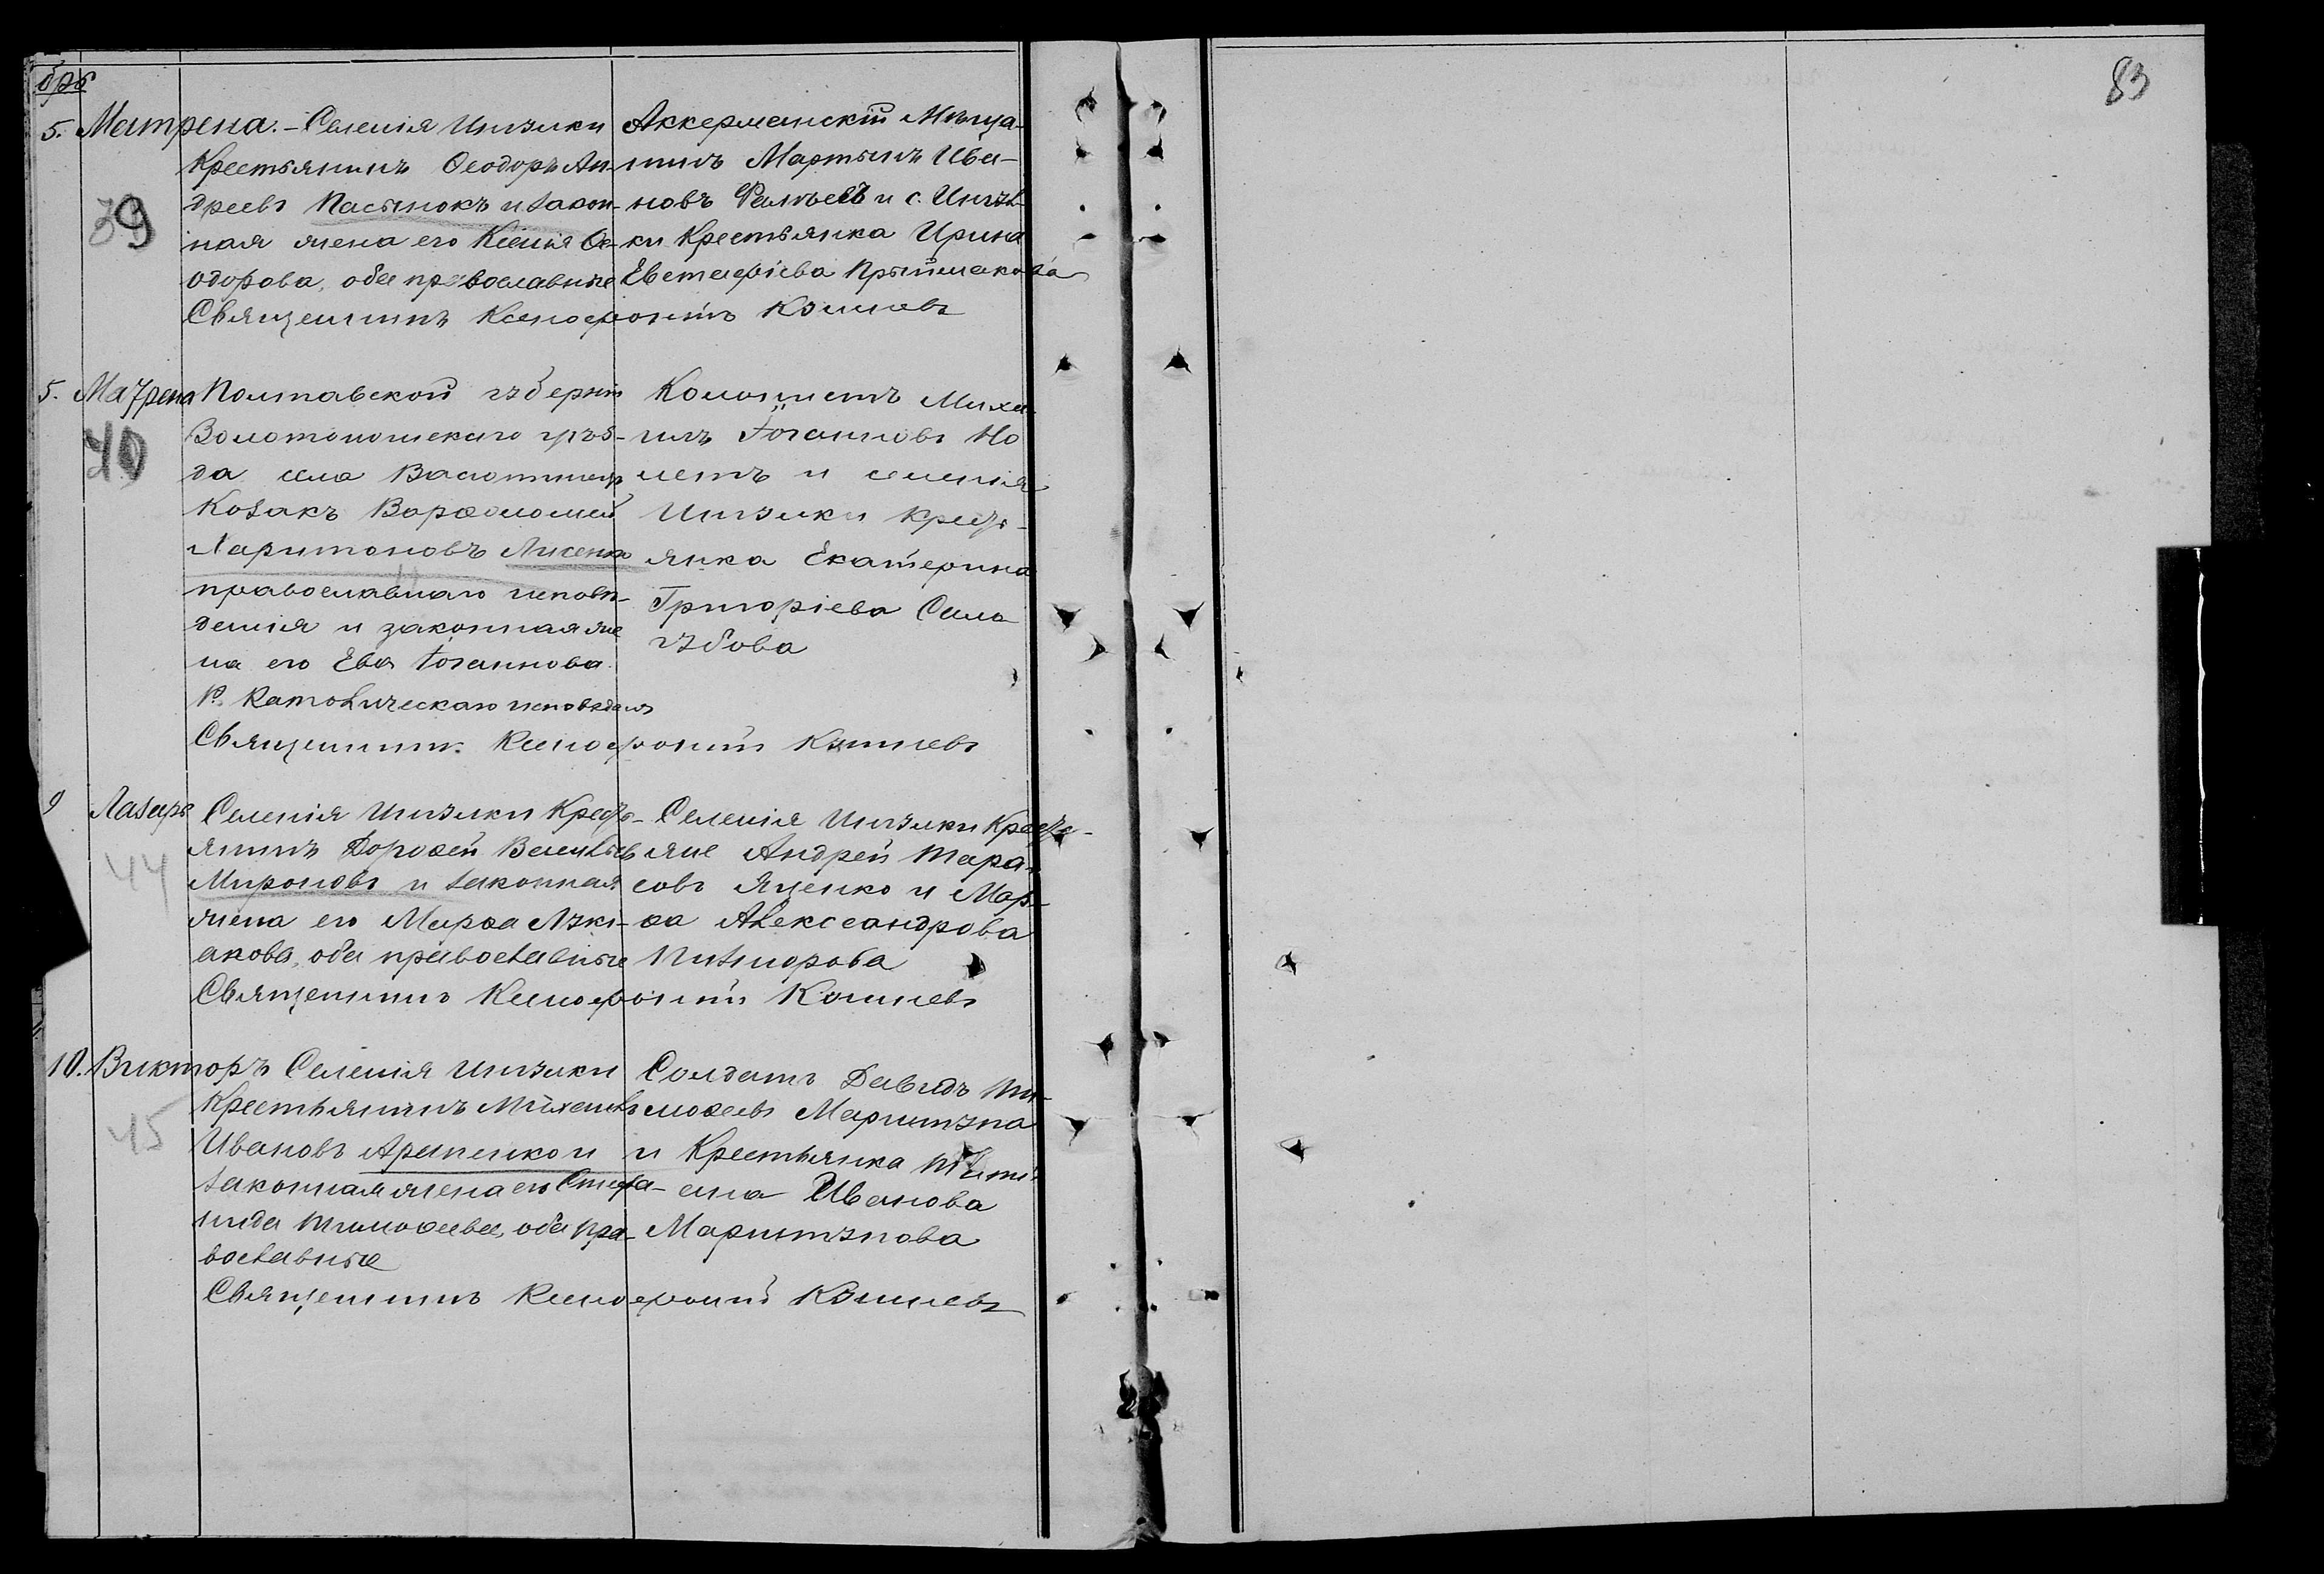 83
брѣ
5. Матрена. – Селенія Интзики
Крестьянинъ Ѳеодоръ Ан-
39
дреевъ Пасынокъ и закон-
ная жена его Ксенія Ѳе-
одорова, оба православные
Аккерманскій Мѣща-
нинъ Мартынъ Ива-
новъ и с. Интзы-
ки Крестьянка Ирина
Евстафіева Прыймакова
Священникъ Ксенофонтъ
5. Матрена Полтавской губерніи
40
Золотоношскаго уѣз-
да села
Козакъ Варѳоломей
Харитоновъ Лисенко
православнаго исповѣ-
данія и законная же
на его Ева Іоганнова
Р. Католическаго исповѣданія
Колонистъ Миха-
илъ Іоганновъ Но
летъ и селенія
Интзики крест-
янка Екатерина
Григоріева Сало
губова
Священникъ Ксенофонтъ
9 Лазарь Селенія Интзики Крест-
янинъ Дороѳей Васильевъ
44
Мироновъ и законная
жена его Марѳа Луки-
анова, оба православные
Селенія Интзики Кресть-
яне Андрей Тара-
совъ Яценко и Мар-
ѳа Александрова
Священникъ Ксенофонтъ
10. Викторъ Селенія Интзики
Крестьянинъ Михаилъ
45
Ивановъ Арипенко и
законная жена его Степа-
нида Тимоѳеева, оба пра-
вославные
Солдатъ Давидъ Ти-
моѳеевъ Маритуца
и Крестьянка Тати-
ана Иванова
Маритуцова
Священникъ Ксенофонтъ